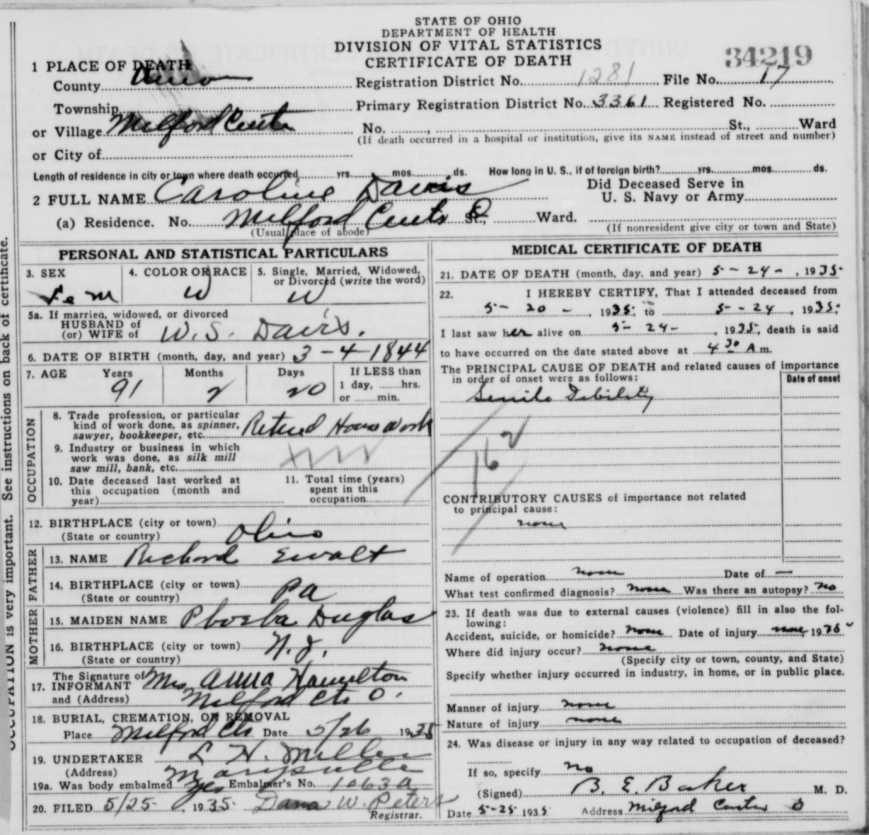 STATE OF OHIO
DEPARTMENT OF HEALTH
DIVISION OF VITAL STATISTICS
CERTIFICATE OF DEATH
34219
1 PLACE OF DEATH
County Union Registration District No. 1281 File No. 17
Township Primary Registration District No. 3361 Registered No.
or Village Milford Center No. , St., Ward
(If death occurred in a hospital or institution, give its NAME instead of street and number)
or City of
Length of residence in city or town where death occurred yrs. mos. ds. How long in U. S., if of foreign birth? yrs. mos. ds.
2 FULL NAME Caroline Davis Did Deceased Serve in U. S. Navy or Army
(a) Residence. No. Milford Center O St., Ward.
(Usual place of abode) (If nonresident give city or town and State)
PERSONAL AND STATISTICAL PARTICULARS
3. SEX Fem
4. COLOR OR RACE W
5. Single, Married, Widowed, or Divorced (write the word) W
5a. If married, widowed, or divorced
HUSBAND of
(or) WIFE of W. S. Davis.
6. DATE OF BIRTH (month, day, and year) 3-4-1844
7. AGE Years 91 Months 2 Days 20 If LESS than 1 day, hrs. or min.
OCCUPATION
8. Trade profession, or particular kind of work done, as spinner, sawyer, bookkeeper, etc. Retired House Work
9. Industry or business in which work was done, as silk mill saw mill, bank, etc.
10. Date deceased last worked at this occupation (month and year)
11. Total time (years) spent in this occupation
12. BIRTHPLACE (city or town)
(State or country) Ohio
FATHER
13. NAME Richard Ewalt
14. BIRTHPLACE (city or town)
(State or country) Pa
MOTHER
15. MAIDEN NAME Phoeba Duglas
16. BIRTHPLACE (city or town)
(State or country) N. J.
17. The Signature of INFORMANT Mrs Anna Hamilton
and (Address) Milford Ctr O.
18. BURIAL, CREMATION, OR REMOVAL
Place Milford Ctr Date 5/26 1935
19. UNDERTAKER L H. Miller
(Address) Marysville
19a. Was body embalmed Yes Embalmer's No. 1063a
20. FILED 5/25 1935 Dana W. Peters
Registrar.
MEDICAL CERTIFICATE OF DEATH
21. DATE OF DEATH (month, day, and year) 5-24-, 1935
22. I HEREBY CERTIFY, That I attended deceased from
5-20-, 1935 to 5-24, 1935.
I last saw her alive on 5-24-, 1935, death is said
to have occurred on the date stated above at 4 30 A m.
The PRINCIPAL CAUSE OF DEATH and related causes of importance
in order of onset were as follows: Date of onset
Senile Debility
162
CONTRIBUTORY CAUSES of importance not related
to principal cause:
none
Name of operation none Date of —
What test confirmed diagnosis? none Was there an autopsy? No
23. If death was due to external causes (violence) fill in also the following:
Accident, suicide, or homicide? none Date of injury none 193
Where did injury occur? none
(Specify city or town, county, and State)
Specify whether injury occurred in industry, in home, or in public place.
Manner of injury none
Nature of injury none
24. Was disease or injury in any way related to occupation of deceased?
If so, specify no
(Signed) B. E. Baker M. D.
Date 5-25 1935 Address Milford Center O
OCCUPATION is very important. See instructions on back of certificate.